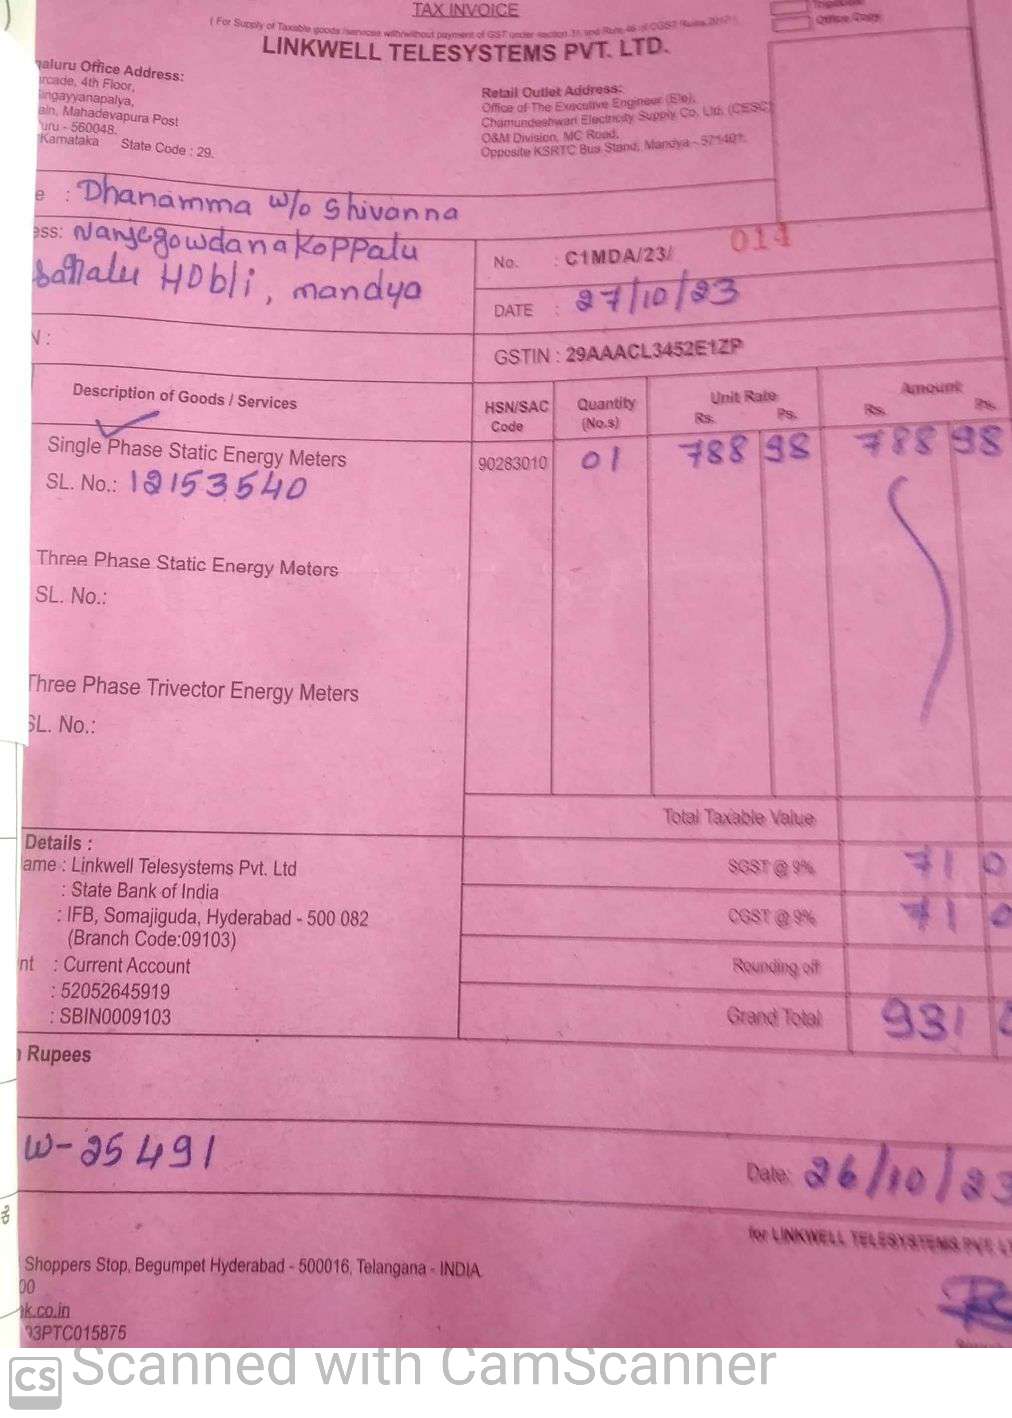 TAX INVOICE
( For Supply of Taxable goods /services with/without payment of GST under section 31 and Rule 46 of CGST Rules 2017)
Office Copy
LINKWELL TELESYSTEMS PVT. LTD.
aluru Office Address:
rcade, 4th Floor,
angayyanapalya,
ain, Mahadevapura Post
uru - 560048.
Karnataka State Code : 29.
Retail Outlet Address:
Office of The Executive Engineer (Ele),
Chamundeshwari Electricity Supply Co. Ltd. (CESC)
O&M Division, MC Road,
Opposite KSRTC Bus Stand, Mandya - 571401.
e : Dhanamma w/o Shivanna
ess: Nanjegowdana Koppalu
HObli, mandya
No. : C1MDA/23/ 014
DATE : 27/10/23
N :
GSTIN : 29AAACL3452E1ZP
Description of Goods / Services HSN/SAC Code Quantity (No.s) Unit Rate Rs. Ps. Amount Rs. Ps.
Single Phase Static Energy Meters 90283010 01 788 98 788 98
SL. No.: 12153540
Three Phase Static Energy Meters
SL. No.:
Three Phase Trivector Energy Meters
SL. No.:
Total Taxable Value
Details :
ame : Linkwell Telesystems Pvt. Ltd
: State Bank of India
: IFB, Somajiguda, Hyderabad - 500 082
(Branch Code:09103)
nt : Current Account
: 52052645919
: SBIN0009103
SGST @ 9% 71 0
CGST @ 9% 71 0
Rounding off
Grand Total 931
n Rupees
W-25491
Date: 26/10/23
for LINKWELL TELESYSTEMS PVT. LT
Shoppers Stop, Begumpet Hyderabad - 500016, Telangana - INDIA
00
k.co.in
93PTC015875
CS Scanned with CamScanner